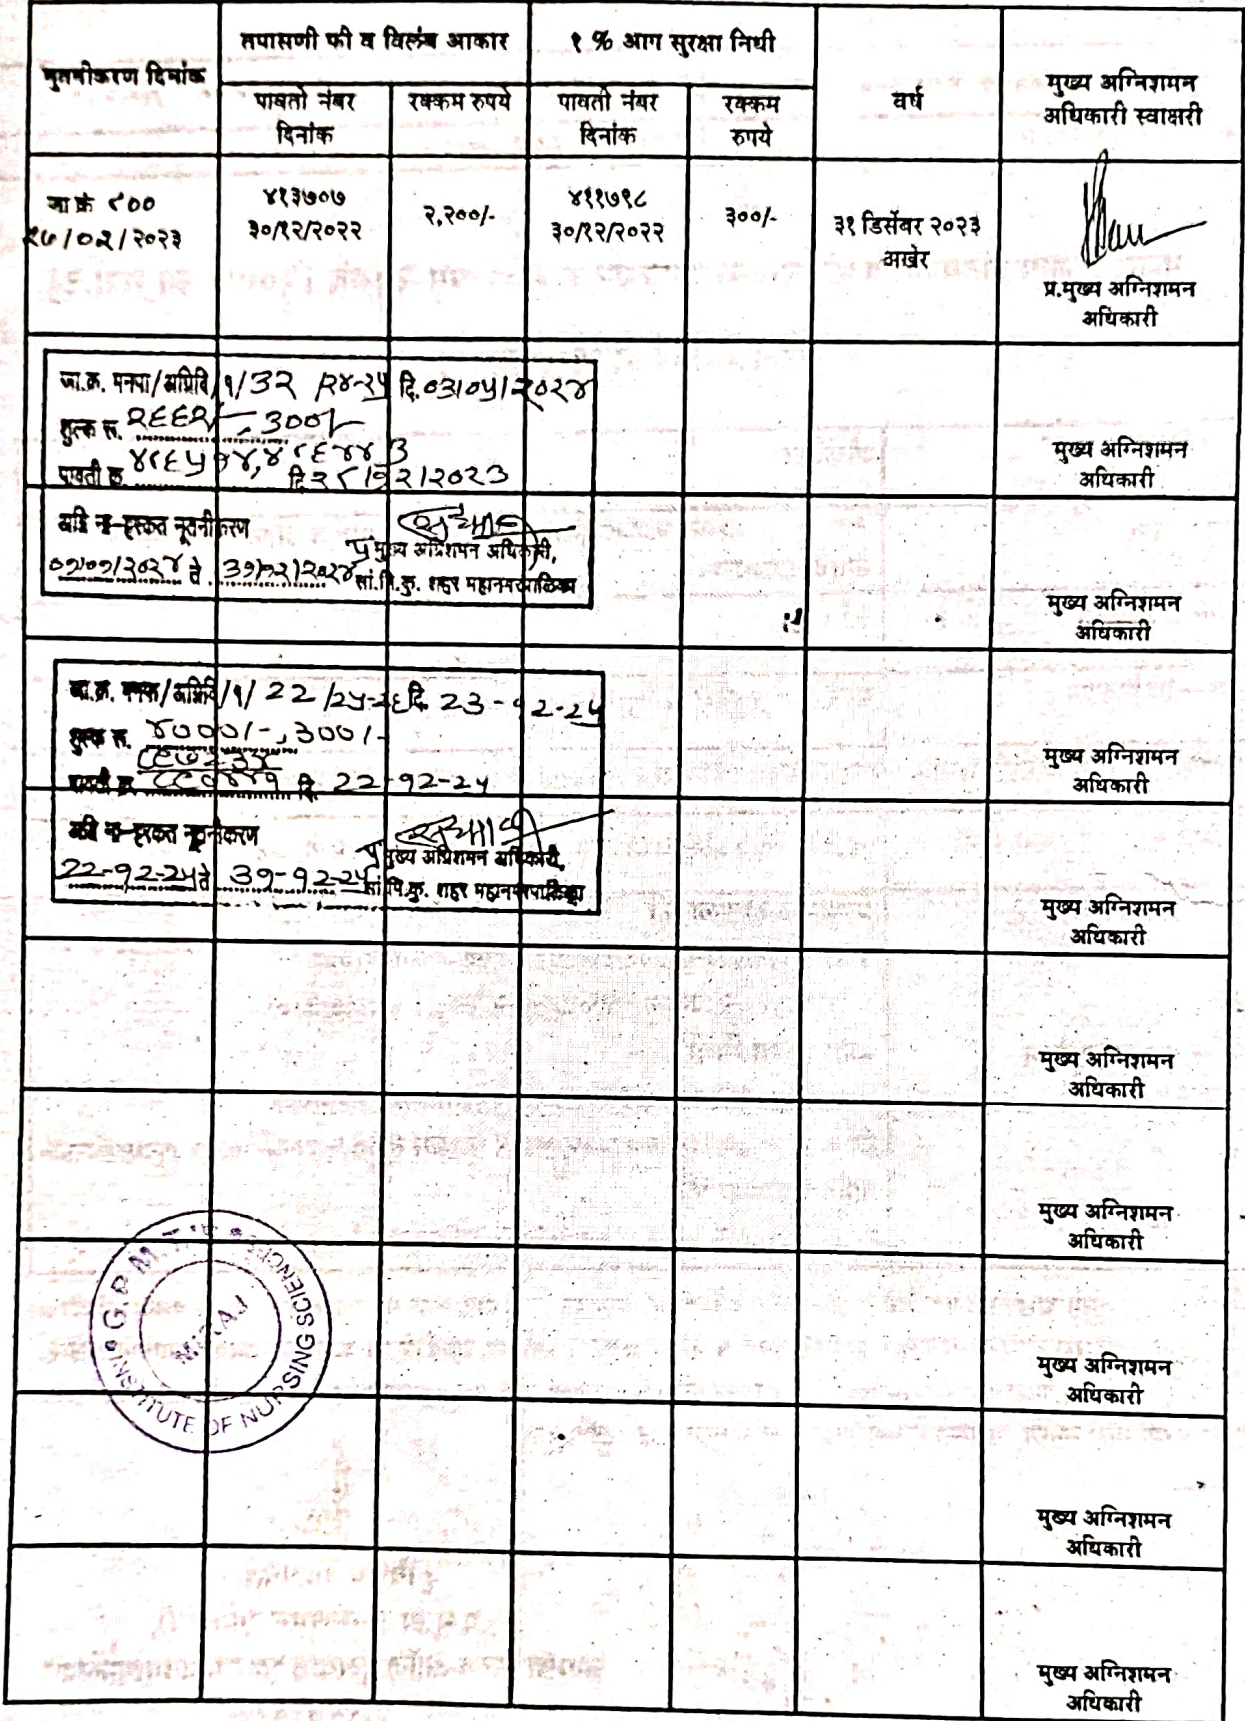 नुतनीकरण दिनांक
तपासणी फी व विलंब आकार
१ % आग सुरक्षा निधी
वर्ष
मुख्य अग्निशमन
अधिकारी स्वाक्षरी
पावती नंबर
दिनांक
रक्कम रुपये
पावती नंबर
दिनांक
रक्कम
रुपये
जा क्रं ८००
२७/०२/२०२३
४१३७०७
३०/१२/२०२२
२,२००/-
४११७९८
३०/१२/२०२२
३००/-
३१ डिसेंबर २०२३
अखेर
प्र.मुख्य अग्निशमन
अधिकारी
जा.क्र. मनपा/अग्निवि/१/32 /२४-२५ दि.०३/०५/२०२४
शुल्क रू. २६६२/-, ३००/-
पावती क्र. दि २८/१२/२०२३
मुख्य अग्निशमन
अधिकारी
अग्नि ना-हरकत नूतनीकरण
०१/०१/२०२४ ते ३१/१२/२०२४
प्र मुख्य अग्निशमन अधिकारी,
सां.मि.कु. शहर महानगरपालिका
मुख्य अग्निशमन
अधिकारी
जा.क्र. मनपा/अग्निवि/१/ 22 /२५-२६ दि. 23-१2-२५
शुल्क रू. ४०००/-, ३००/-
पावती क्र. दि. 22-१2-२५
मुख्य अग्निशमन
अधिकारी
अग्नि ना-हरकत नूतनीकरण
22-१2-२५ ते ३१-१2-२५
प्र मुख्य अग्निशमन अधिकारी,
सां.मि.कु. शहर महानगरपालिका
मुख्य अग्निशमन
अधिकारी
मुख्य अग्निशमन
अधिकारी
मुख्य अग्निशमन
अधिकारी
G.P.M.
INSTITUTE OF NURSING SCIENCES
MIRAJ
मुख्य अग्निशमन
अधिकारी
मुख्य अग्निशमन
अधिकारी
मुख्य अग्निशमन
अधिकारी